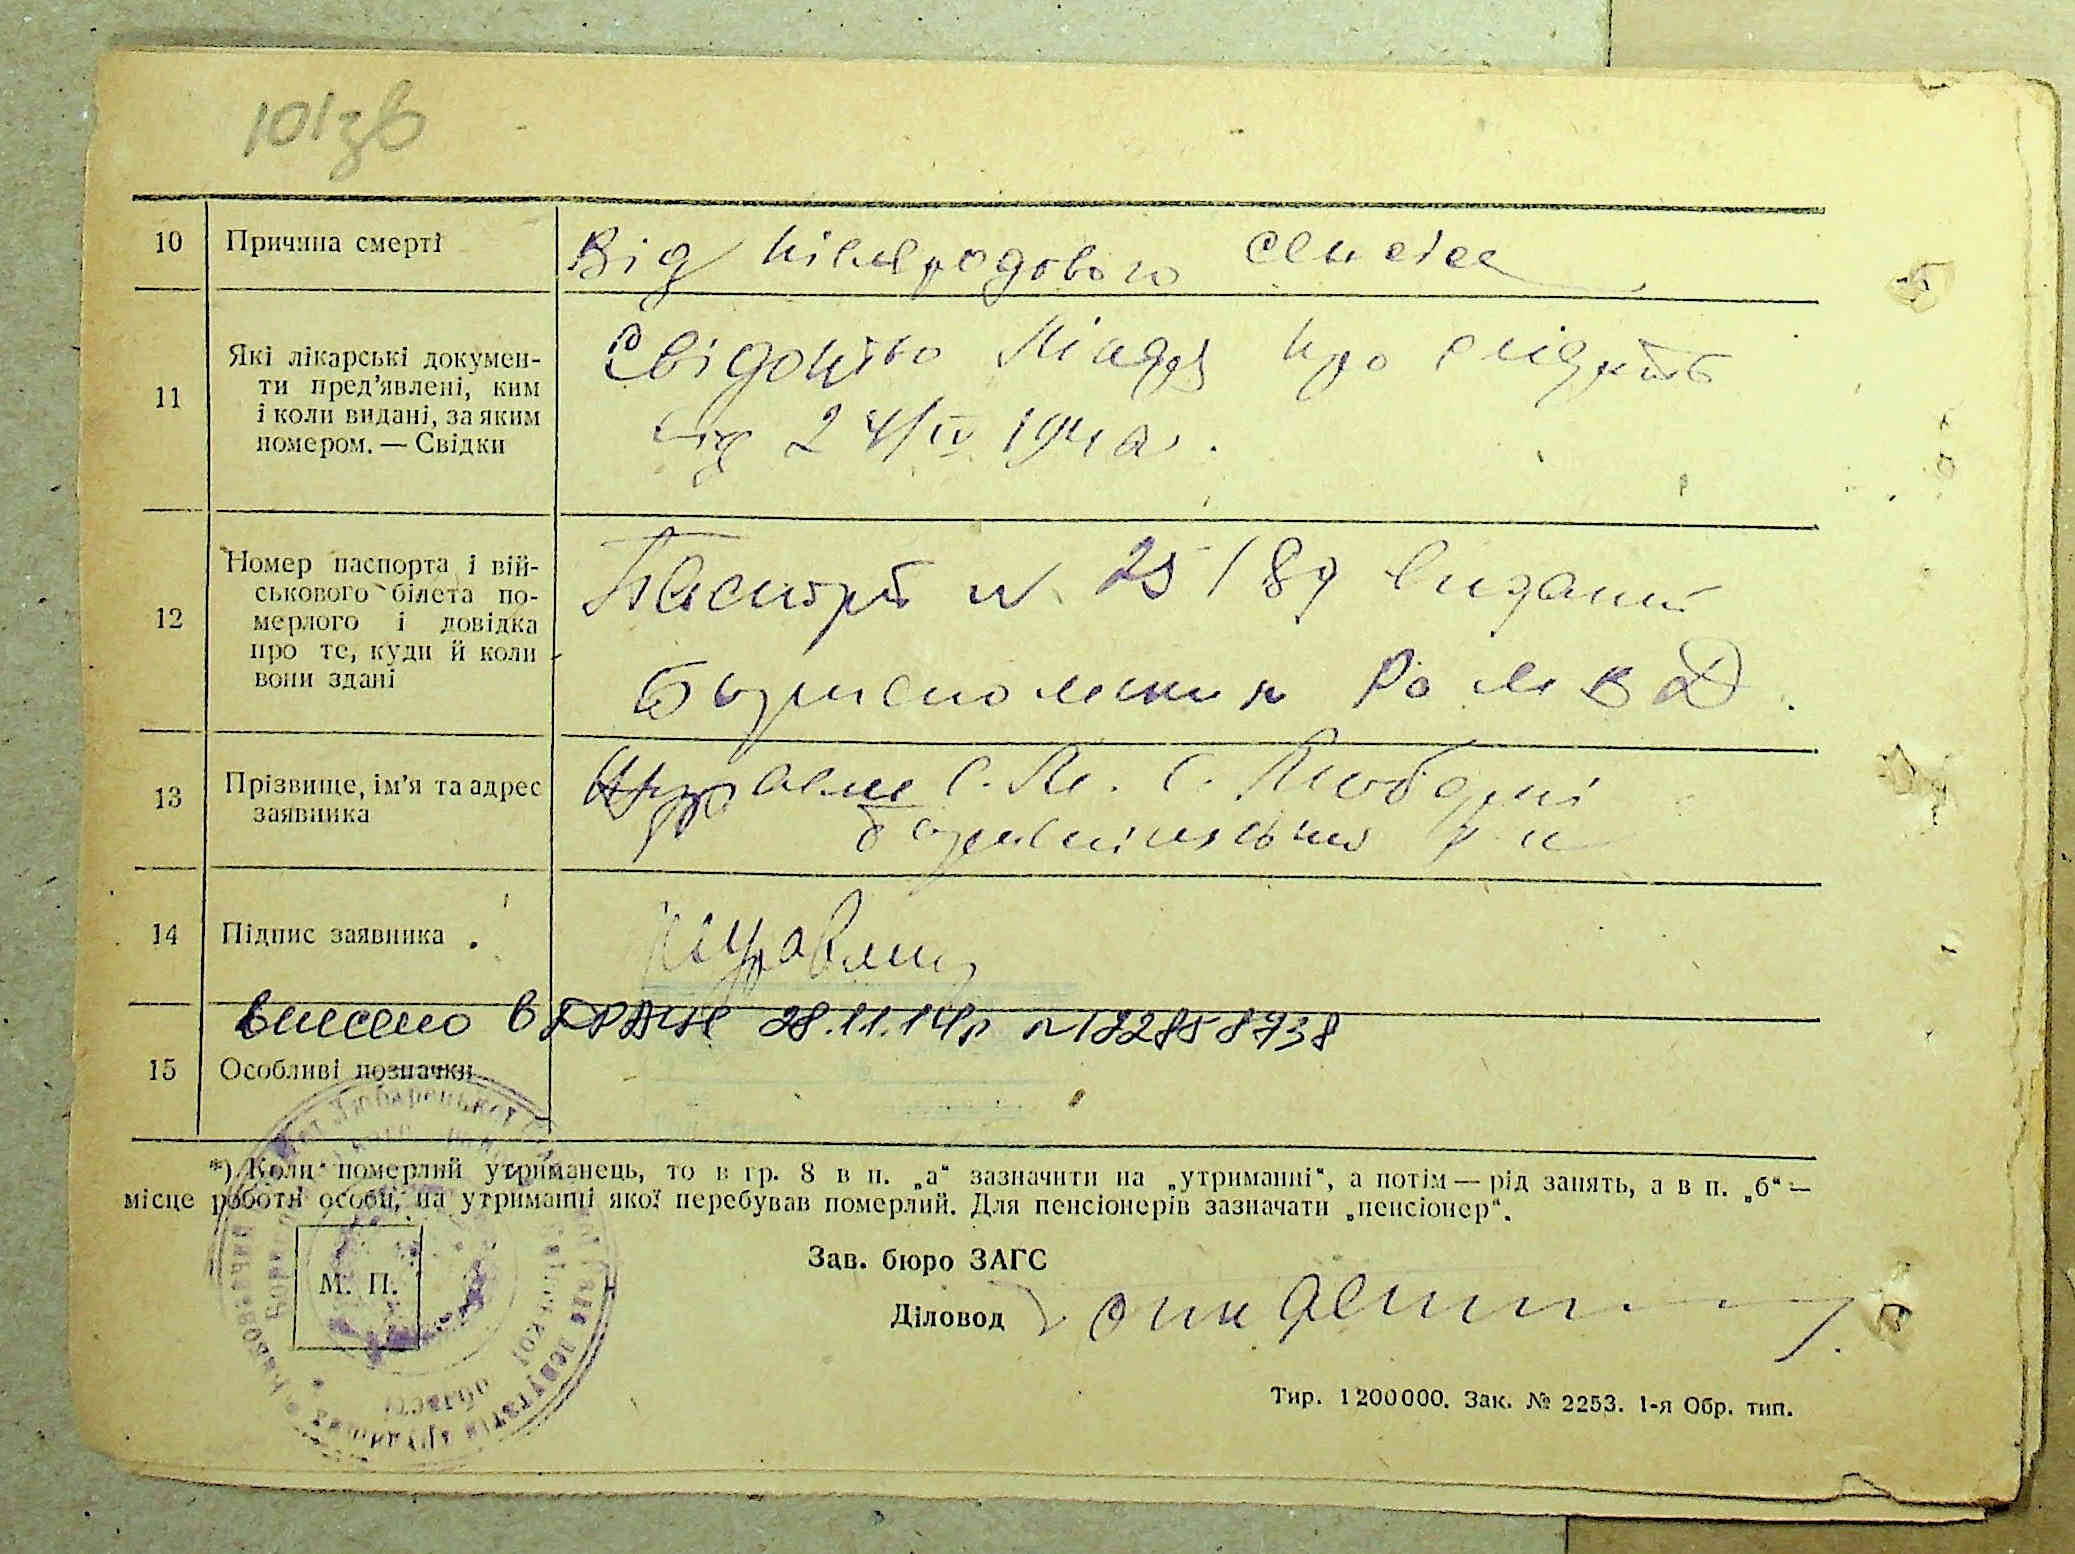 101зв
10 Причина смерті
Від післяродового сепсиса
11 Які лікарські докумен-
ти пред’явлені, ким
і коли видані, за яким
номером. — Свідки
Свідоцтво про смерть
від 24/IV 194
12 Номер паспорта і вій-
ськового білета по-
мерлого і довідка
про те, куди й коли
вони здані
Паспорт № 25189 виданий
Бориспольским Ро МВД.
13 Прізвище, ім’я та адрес
заявника
С. М. С. Любарці
Бориспільський р-н
14 Підпис заявника
внесено в ДРАЦС 28.11.14р №
15 Особливі позначки
*) Коли померлий утриманець, то в гр. 8 в п. „а“ зазначити на „утриманні“, а потім — рід занять, а в п. „б“ —
місце роботи особи, на утриманні якої перебував померлий. Для пенсіонерів зазначати „пенсіонер“.
М. П.
Зав. бюро ЗАГС
Діловод
Тир. 1200000. Зак. № 2253. 1-я Обр. тип.